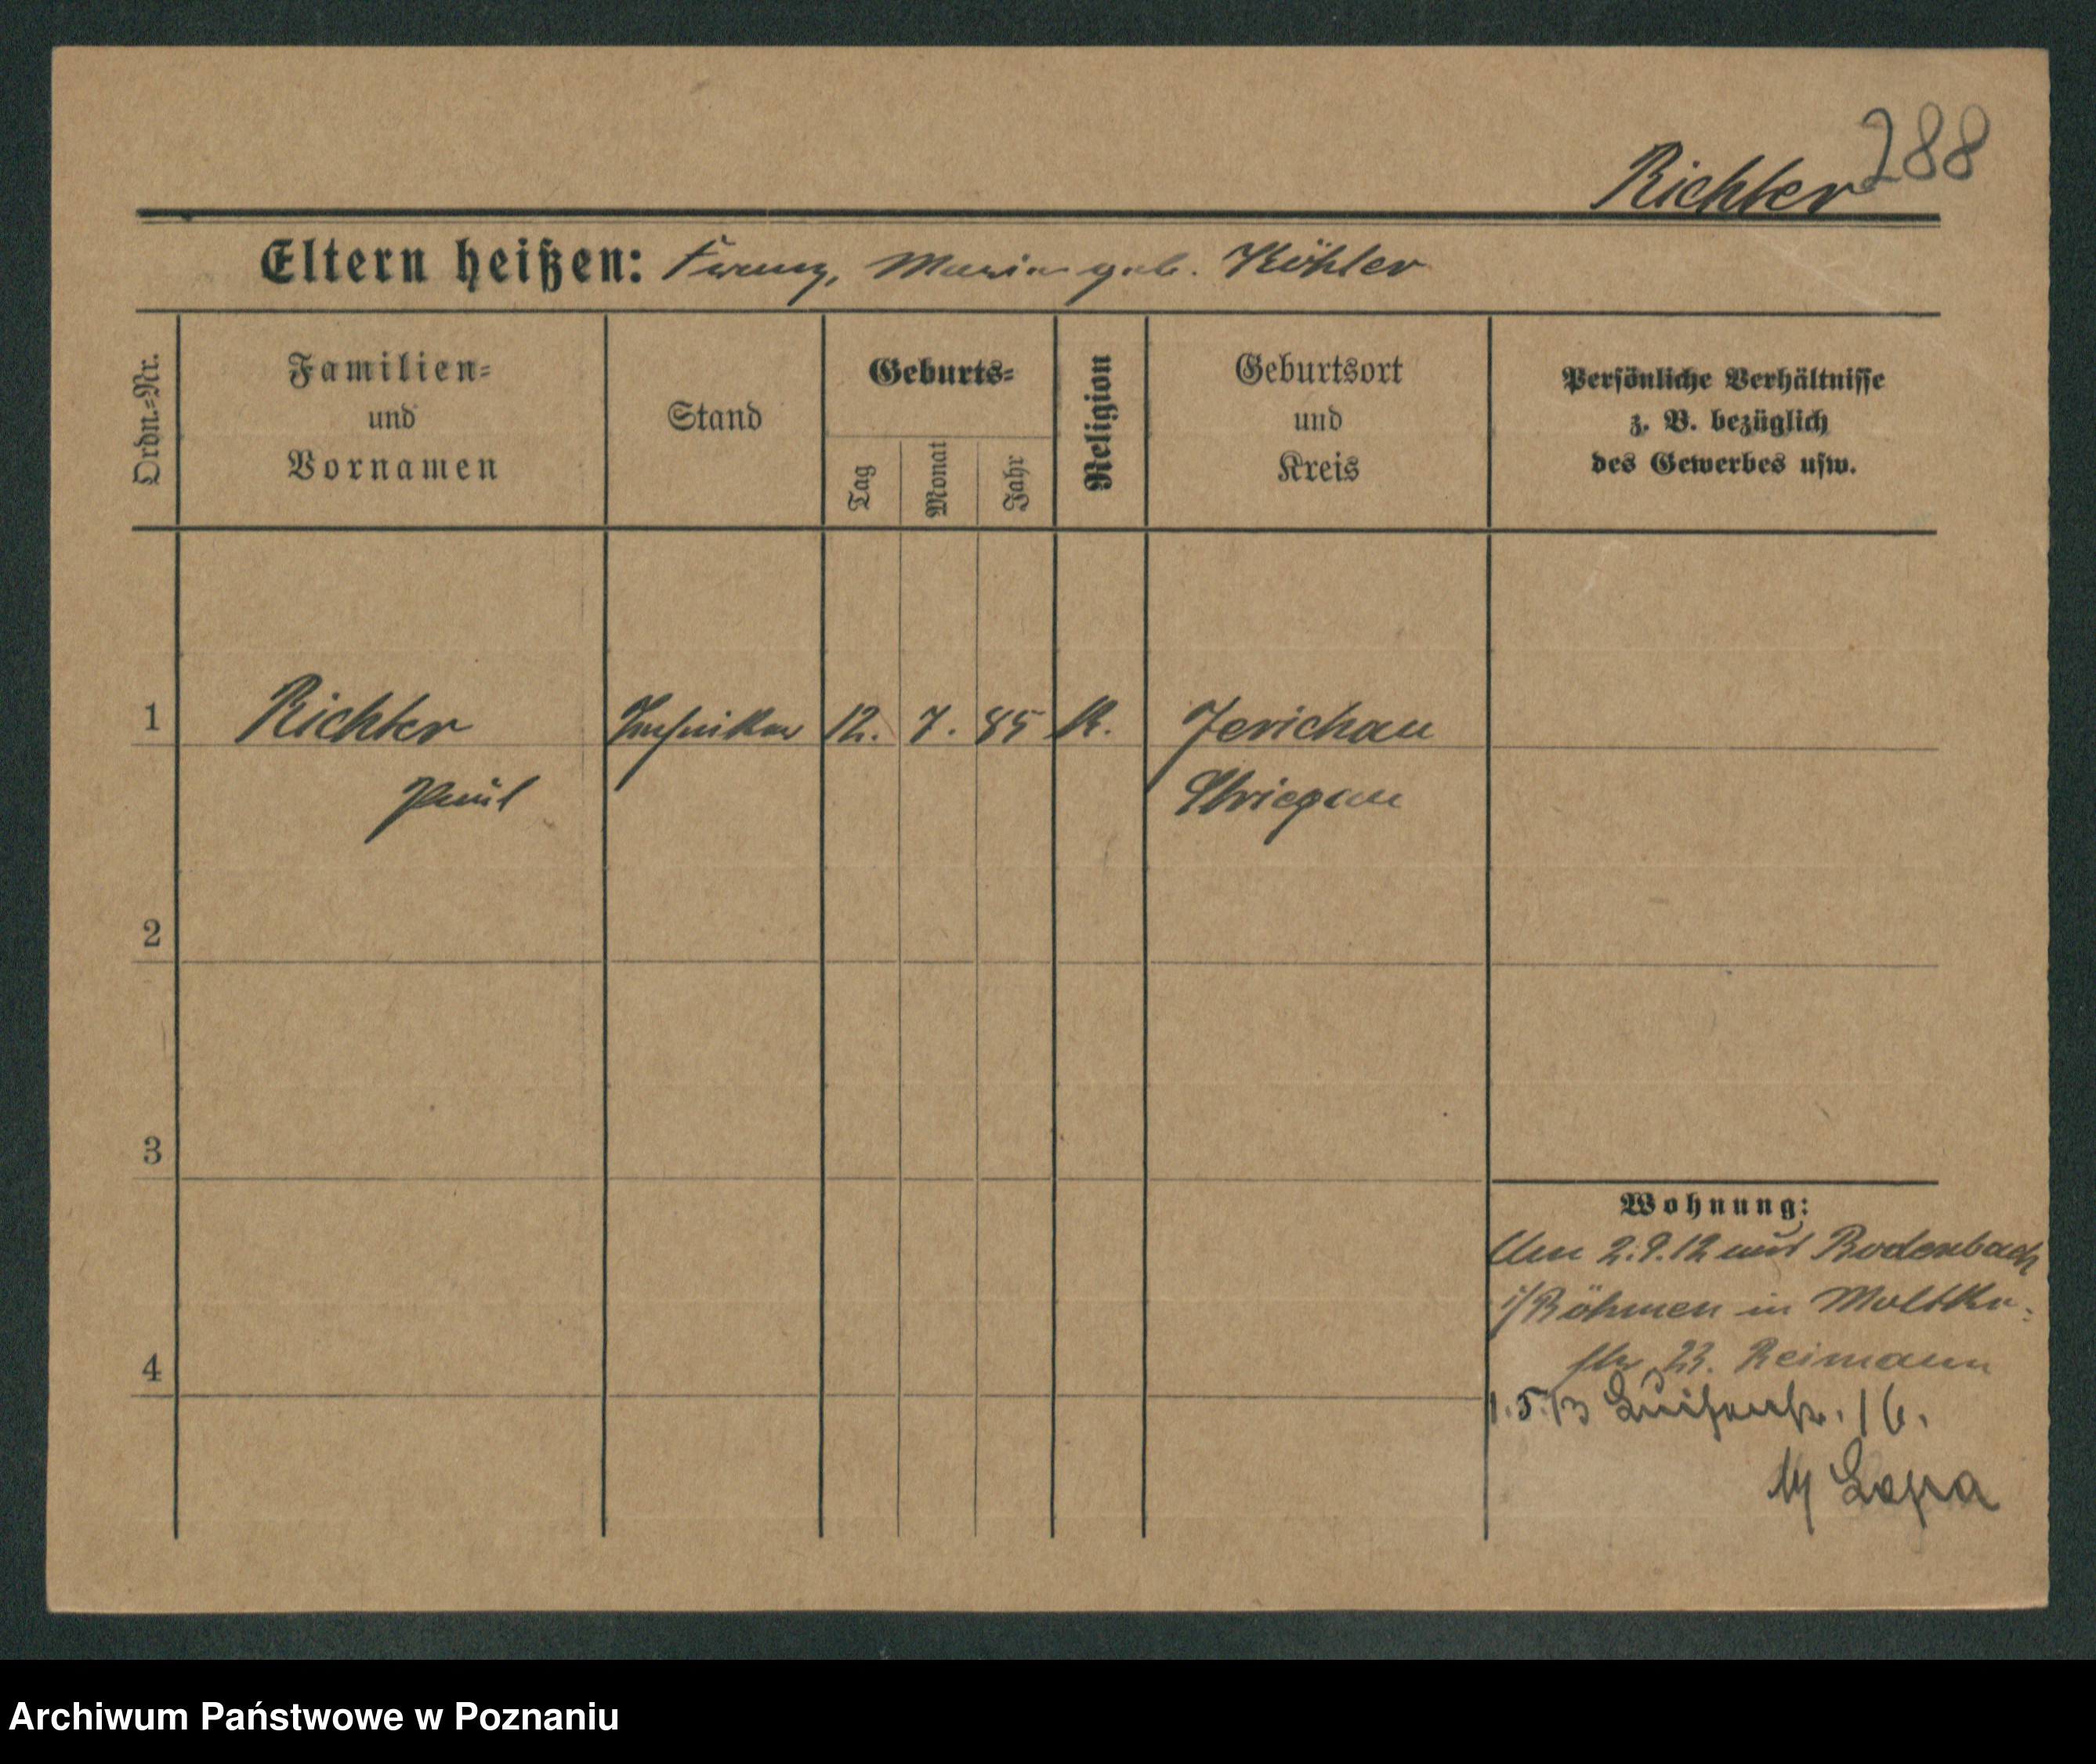 288
Richter
Eltern heißen: Franz, Maria geb. Köhler
Ordn.=Nr.
Familien=
und
Vornamen
Stand
Geburts=
Tag
Monat
Jahr
Religion
Geburtsort
und
Kreis
Persönliche Verhältnisse
z. B. bezüglich
des Gewerbes usw.
1 Richter 12. 7. 85 K. Jerichau
Paul Striegau
2
3
Wohnung:
2.9.12 aus Bodenbach
i/Böhmen in Moltke=
4
str 23. Reimann
1.5.13 Luisenstr. 16.
Archiwum Państwowe w Poznaniu